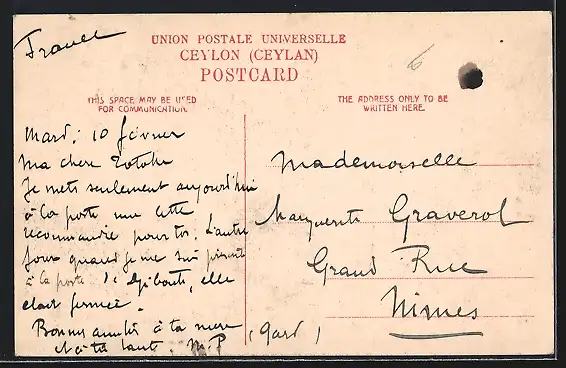 France
UNION POSTALE UNIVERSELLE
CEYLON (CEYLAN)
POSTCARD
6
THIS SPACE MAY BE USED
FOR COMMUNICATION.
THE ADDRESS ONLY TO BE
WRITTEN HERE.
Mardi 10 février
Ma chere
Je mets seulement aujourd'hui
à la poste une lettre
recommandée pour toi. L'autre
jour quand je me suis présenté
à la poste de Djibouti, elle
était fermée.
Bonnes amitiés à ta mere
et à ta tante. M. P
Mademoiselle
Marguerite Graverol
Grand Rue
Nimes
(Gard)